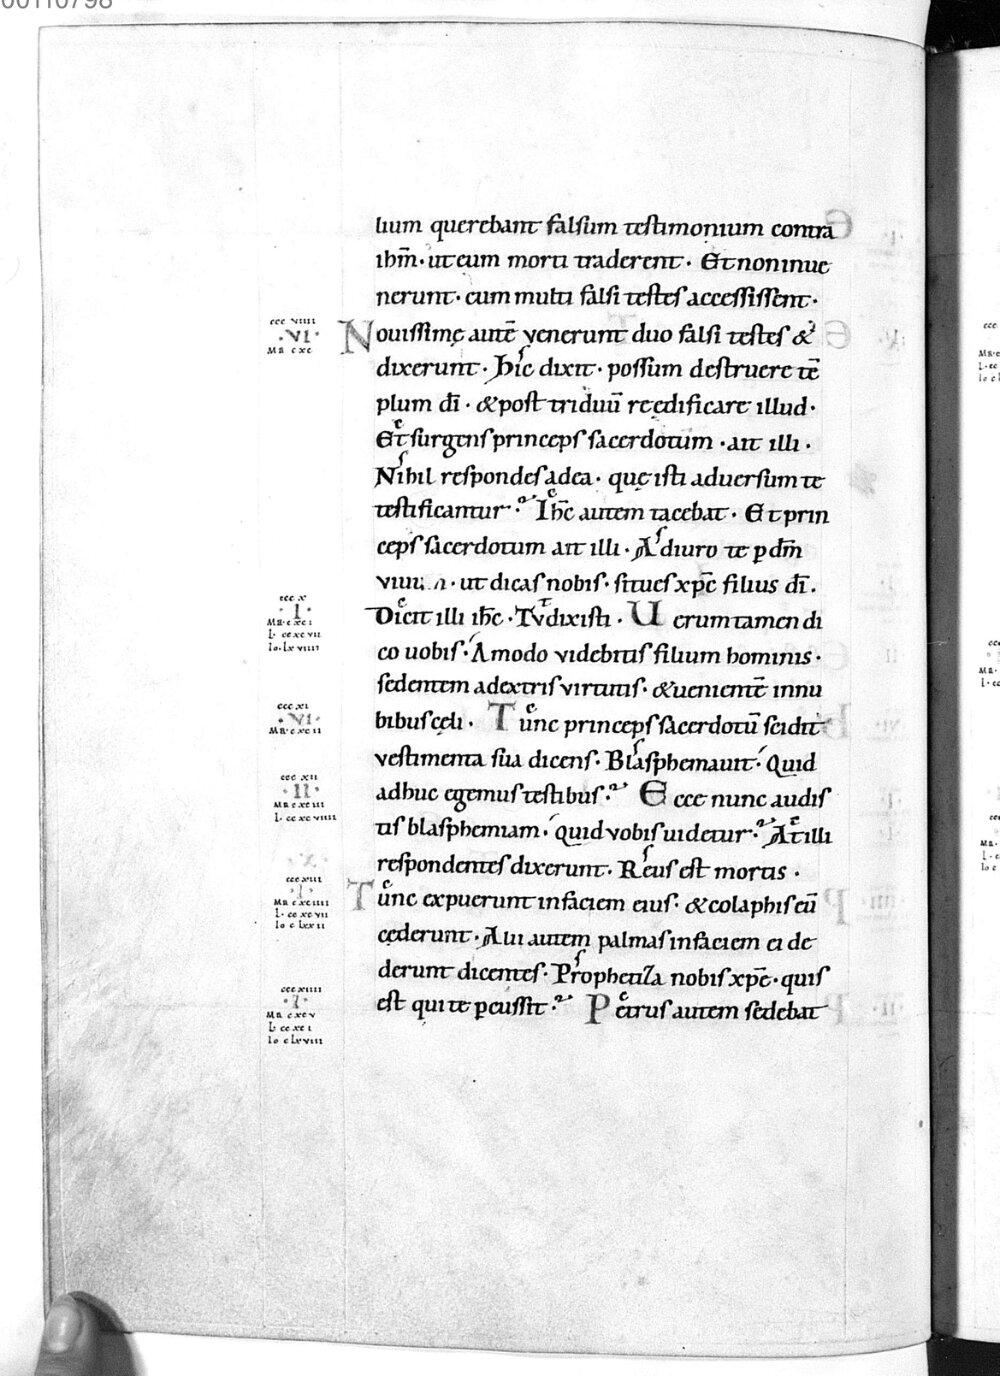 00110798
lium querebant falsum testimonium contra
ihm̅· ut eum morti traderent· Et non inue
nerunt· cum multi falsi testes accessissent·
ccc viiii
·VI·
Ma cxc
Nouissimę autē venerunt duo falsi testes &
dixerunt· Hic dixit· possum destruere tē
plum dī· & post triduū reędificare illud·
Et surgens princeps sacerdotum · ait illi ·
Nihil respondes ad ea· quę isti aduersum te
testificantur· Ihc̅ autem tacebat· Et prin
ceps sacerdotum ait illi· Adiuro te p dm̅
· ut dicas nobis· si tu es xpc̅ filius dī·
ccc x
·I·
Ma·cxci
L· cc xc vii
Io·lxviiii
Dicit illi ihc̅· Tv dixisti· Uerumtamen di
co uobis· Amodo videbitis filium hominis·
sedentem a dextris virtutis· & uenientē in nu
ccc xi
·VI·
Ma·cxcii
bibus cęli· Tunc princeps sacerdotū scidit
vestimenta sua dicens· Blasphemauit· Quid
ccc xii
·II·
Ma cxciii
L· cc xc viiii
adhuc egemus testibus· Ecce nunc audis
tis blasphemiam· quid vobis uidetur· At illi
respondentes dixerunt· Reus est mortis ·
ccc xiii
·I·
Ma cxciiii
L· cc xc vii
Io c lxxii
Tunc expuerunt in faciem eius· & colaphis eū
cęderunt· Alii autem palmas in faciem ei de
derunt dicentes· Prophetiza nobis xpc̅· quis
ccc xiiii
·I·
Ma cxcv
L· cc xc i
Io c lxviii
est qui te pcussit· Petrus autem sedebat